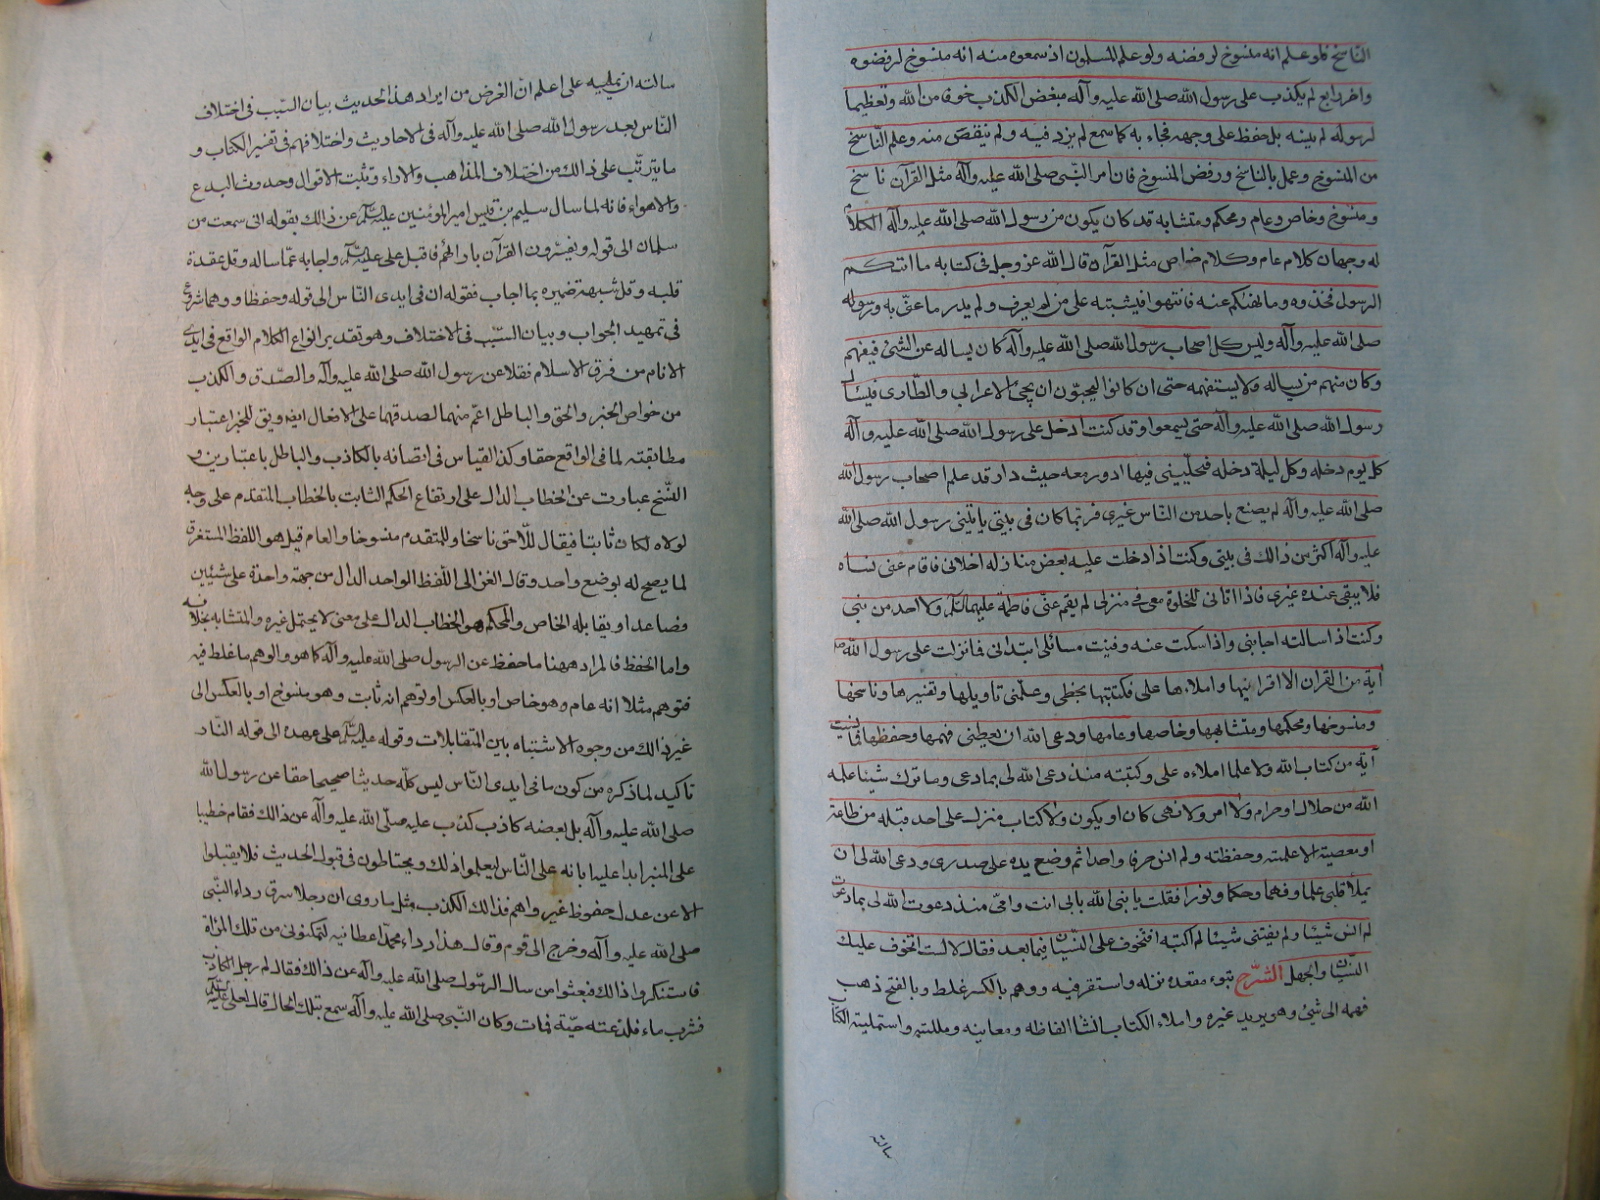 الناسخ فلو علم انه منسوخ لرفضه ولو علم المسلمون اذ سمعوه منه انه منسوخ لرفضوه
واخر رابع لم يكذب على رسول الله صلى الله عليه وآله مبغض الكذب خوفا من الله وتعظيما
لرسوله لم ينسه بل حفظ على وجهه فجاء به كما سمع لم يزد فيه ولم ينقص منه وعلم الناسخ
من المنسوخ وعمل بالناسخ ورفض المنسوخ فان امر النبى صلى الله عليه وآله مثل القرآن ناسخ
ومنسوخ وخاص وعام ومحكم ومتشابه قد كان يكون من رسول الله صلى الله عليه وآله الكلام
له وجهان كلام عام وكلام خاص مثل القرآن قال الله عز وجل فى كتابه ما اتيكم
الرسول فخذوه وما نهيكم عنه فانتهوا فيشتبه على من لم يعرف ولم يدر ما عنى به ورسوله
صلى الله عليه وآله وليس كل اصحاب رسول الله صلى الله عليه وآله كان يساله عن الشئ فيفهم
وكان منهم من يساله ولا يستفهمه حتى ان كانوا ليحبون ان يجئ الاعرابى والطارى فيسئل
رسول الله صلى الله عليه وآله حتى يسمعوا وقد كنت ادخل على رسول الله صلى الله عليه وآله
كل يوم دخله وكل ليلة دخله فيخليينى فيها ادور معه حيث دار قد علم اصحاب رسول الله
صلى الله عليه وآله لم يصنع باحد من الناس غيرى فربما كان فى بيتى ياتينى رسول الله صلى الله
عليه وآله اكثر من ذالك فى بيتى وكنت اذا دخلت عليه بعض منازله اخلانى فاقام عنى نساه
فلا يبقى عنده غيرى فاذا اتانى للخلوة معى فى منزلى لم يقم عنى فاطمة عليهما السلم ولا احد من بنى
وكنت اذ اسالته اجابنى واذا سكت عنه وفنيت مسائلى ابتدانى فانزلت على رسول الله ص
آية من القران الا اقرانيها واملاءها على فكتبتها بخطى وعلمنى تاويلها وتفسيرها وناسخها
ومنسوخها ومحكمها ومتشابهها وخاصها وعامها ودعى الله ان يعطينى فهمها وحفظها فما نسيت
آية من كتاب الله ولا علما املاءه على وكتبته منذ دعى الله لى بما دعى وما ترك شيئا علمه
الله من حلال او حرام ولا امر ولا نهى كان او يكون ولا كتاب منزل على احد قبله من طاعة
او معصية الا علمته وحفظته ولم انس حرفا واحدا ثم وضع يده على صدرى ودعى الله لى ان
يملأ قلبى علما وفهما وحكما ونورا فقلت يا نبى الله بابى انت وامى منذ دعوت الله لى بما دعوت
لم انس شيئا ولم يفتنى شيئا لم اكتبه افتخوف على النسيان فيما بعد فقال لا لست اتخوف عليك
النسيان والجهل الشرح تبوء مقعده نزله واستقر فيه ووهم بالكسر غلط وبالفتح ذهب
فهمه الى شئ وهو يريد غيره واملاء الكتاب انشا الفاظه ومعاينه ومللته واستمليته الكتاب
سالته
سالته ان يمليه على اعلم ان الغرض من ايراد هذا الحديث بيان السبب فى اختلاف
الناس بعد رسول الله صلى الله عليه وآله فى الاحاديث واختلافهم فى تفسير الكتاب و
ما يترتب على ذالك من اختلاف المذاهب والاراء وتشتت الاقوال وحدوث البدع
والاهواء فانه لما سال سليم بن قيس امير المؤمنين عليه السلم عن ذالك بقوله انى سمعت من
سلمان الى قوله ويفسرون القرآن بارائهم فاقبل على عليه السلم واجابه عما ساله وقل عقدة
قلبه وقل شبهة ضميره بما اجاب فقوله ان فى ايدى الناس الى قوله وحفظا ووهما شروع
فى تمهيد الجواب وبيان السبب فى الاختلاف وهو تقدير انواع الكلام الواقع فى ايدى
الانام من فرق الاسلام نقلا عن رسول الله صلى الله عليه وآله والصدق والكذب
من خواص الخبر والحق والباطل اعم منهما لصدقهما على الافعال ايضه ويق للخبر اعتبار
مطابقته لما فى الواقع حقا وكذا القياس فى اتصافه بالكاذب والباطل باعتبارين و
النسخ عبارت عن الخطاب الدال على ارتفاع الحكم الثابت بالخطاب المتقدم على وجه
لولاه لكان ثابتا فيقال للاحق ناسخا وللمتقدم منسوخا والعام قيل هو اللفظ المستغرق
لما يصح له بوضع واحد وقال الغزالى اللفظ الواحد الدال من جهة واحدة على شيئين
فصاعدا ويقابله الخاص والمحكم هو الخطاب الدال على معنى لا يحتمل غيره والمتشابه بخلافه
واما الحفظ فالمراد ههنا ما حفظ عن الرسول صلى الله عليه وآله كما هو والوهم ما غلط فيه
فتوهم مثلا انه عام وهو خاص او بالعكس او توهم انه ثابت وهو منسوخ او بالعكس الى
غير ذالك من وجوه الاشتباه بين المتقابلات وقوله عليه السلم على عهده الى قوله النار
تاكيد لما ذكره من كون ما فى ايدى الناس ليس كله حديثا صحيحا حقا عن رسول الله
صلى الله عليه وآله بل بعضه كاذب كذب عليه صلى الله عليه وآله عن ذالك فقام خطيبا
على المنبر ابدا عليه ابانه على الناس ليعلموا ذلك ويحتاطون فى قبول الحديث فلا يقبلوا
الا عن عدل حفوظ غير واهم فذالك الكذب مثل ما روى ان رجلا سرق رداء النبى
صلى الله عليه وآله وخرج الى قوم وقال هذا رداء محمد اعطانيه لتمكنونى من تلك المرأة
فاستنكروا ذالك فبعثوا من سال الرسول صلى الله عليه وآله عن ذالك فقال لم رجل الكاذب
فشرب ماء فلدغته حية فمات وكان النبى صلى الله عليه وآله سمع بتلك الحال قال لعلى عليه السلم